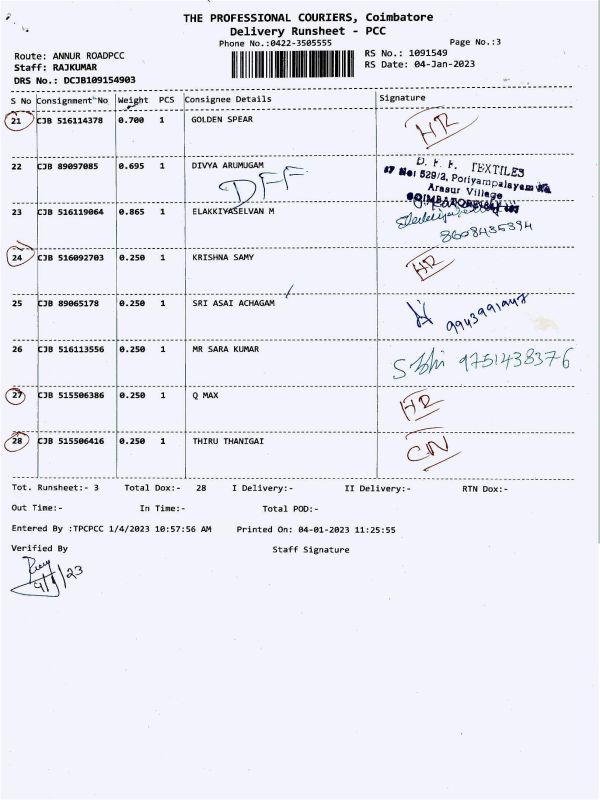 THE PROFESSIONAL COURIERS, Coimbatore
Delivery Runsheet - PCC
Phone No.:0422-3505555
Page No.:3
Route: ANNUR ROADPCC
RS No.: 1091549
Staff: RAJKUMAR
RS Date: 04-Jan-2023
DRS No.: DCJB109154903
S No Consignment No Weight PCS Consignee Details Signature
21 CJB 516114378 0.700 1 GOLDEN SPEAR HR
22 CJB 89097085 0.695 1 DIVYA ARUMUGAM
DFF
D. F. F. TEXTILES
529/2, Poriyampalayam
Arasur Village
COIMBATORE
23 CJB 516119064 0.865 1 ELAKKIYASELVAN M
8608435394
24 CJB 516092703 0.250 1 KRISHNA SAMY HR
25 CJB 89065178 0.250 1 SRI ASAI ACHAGAM 9943991947
26 CJB 516113556 0.250 1 MR SARA KUMAR 9751438376
27 CJB 515506386 0.250 1 Q MAX HR
28 CJB 515506416 0.250 1 THIRU THANIGAI CN
Tot. Runsheet:- 3 Total Dox:- 28 I Delivery:- II Delivery:- RTN Dox:-
Out Time:- In Time:- Total POD:-
Entered By :TPCPCC 1/4/2023 10:57:56 AM Printed On: 04-01-2023 11:25:55
Verified By Staff Signature
4/1/23